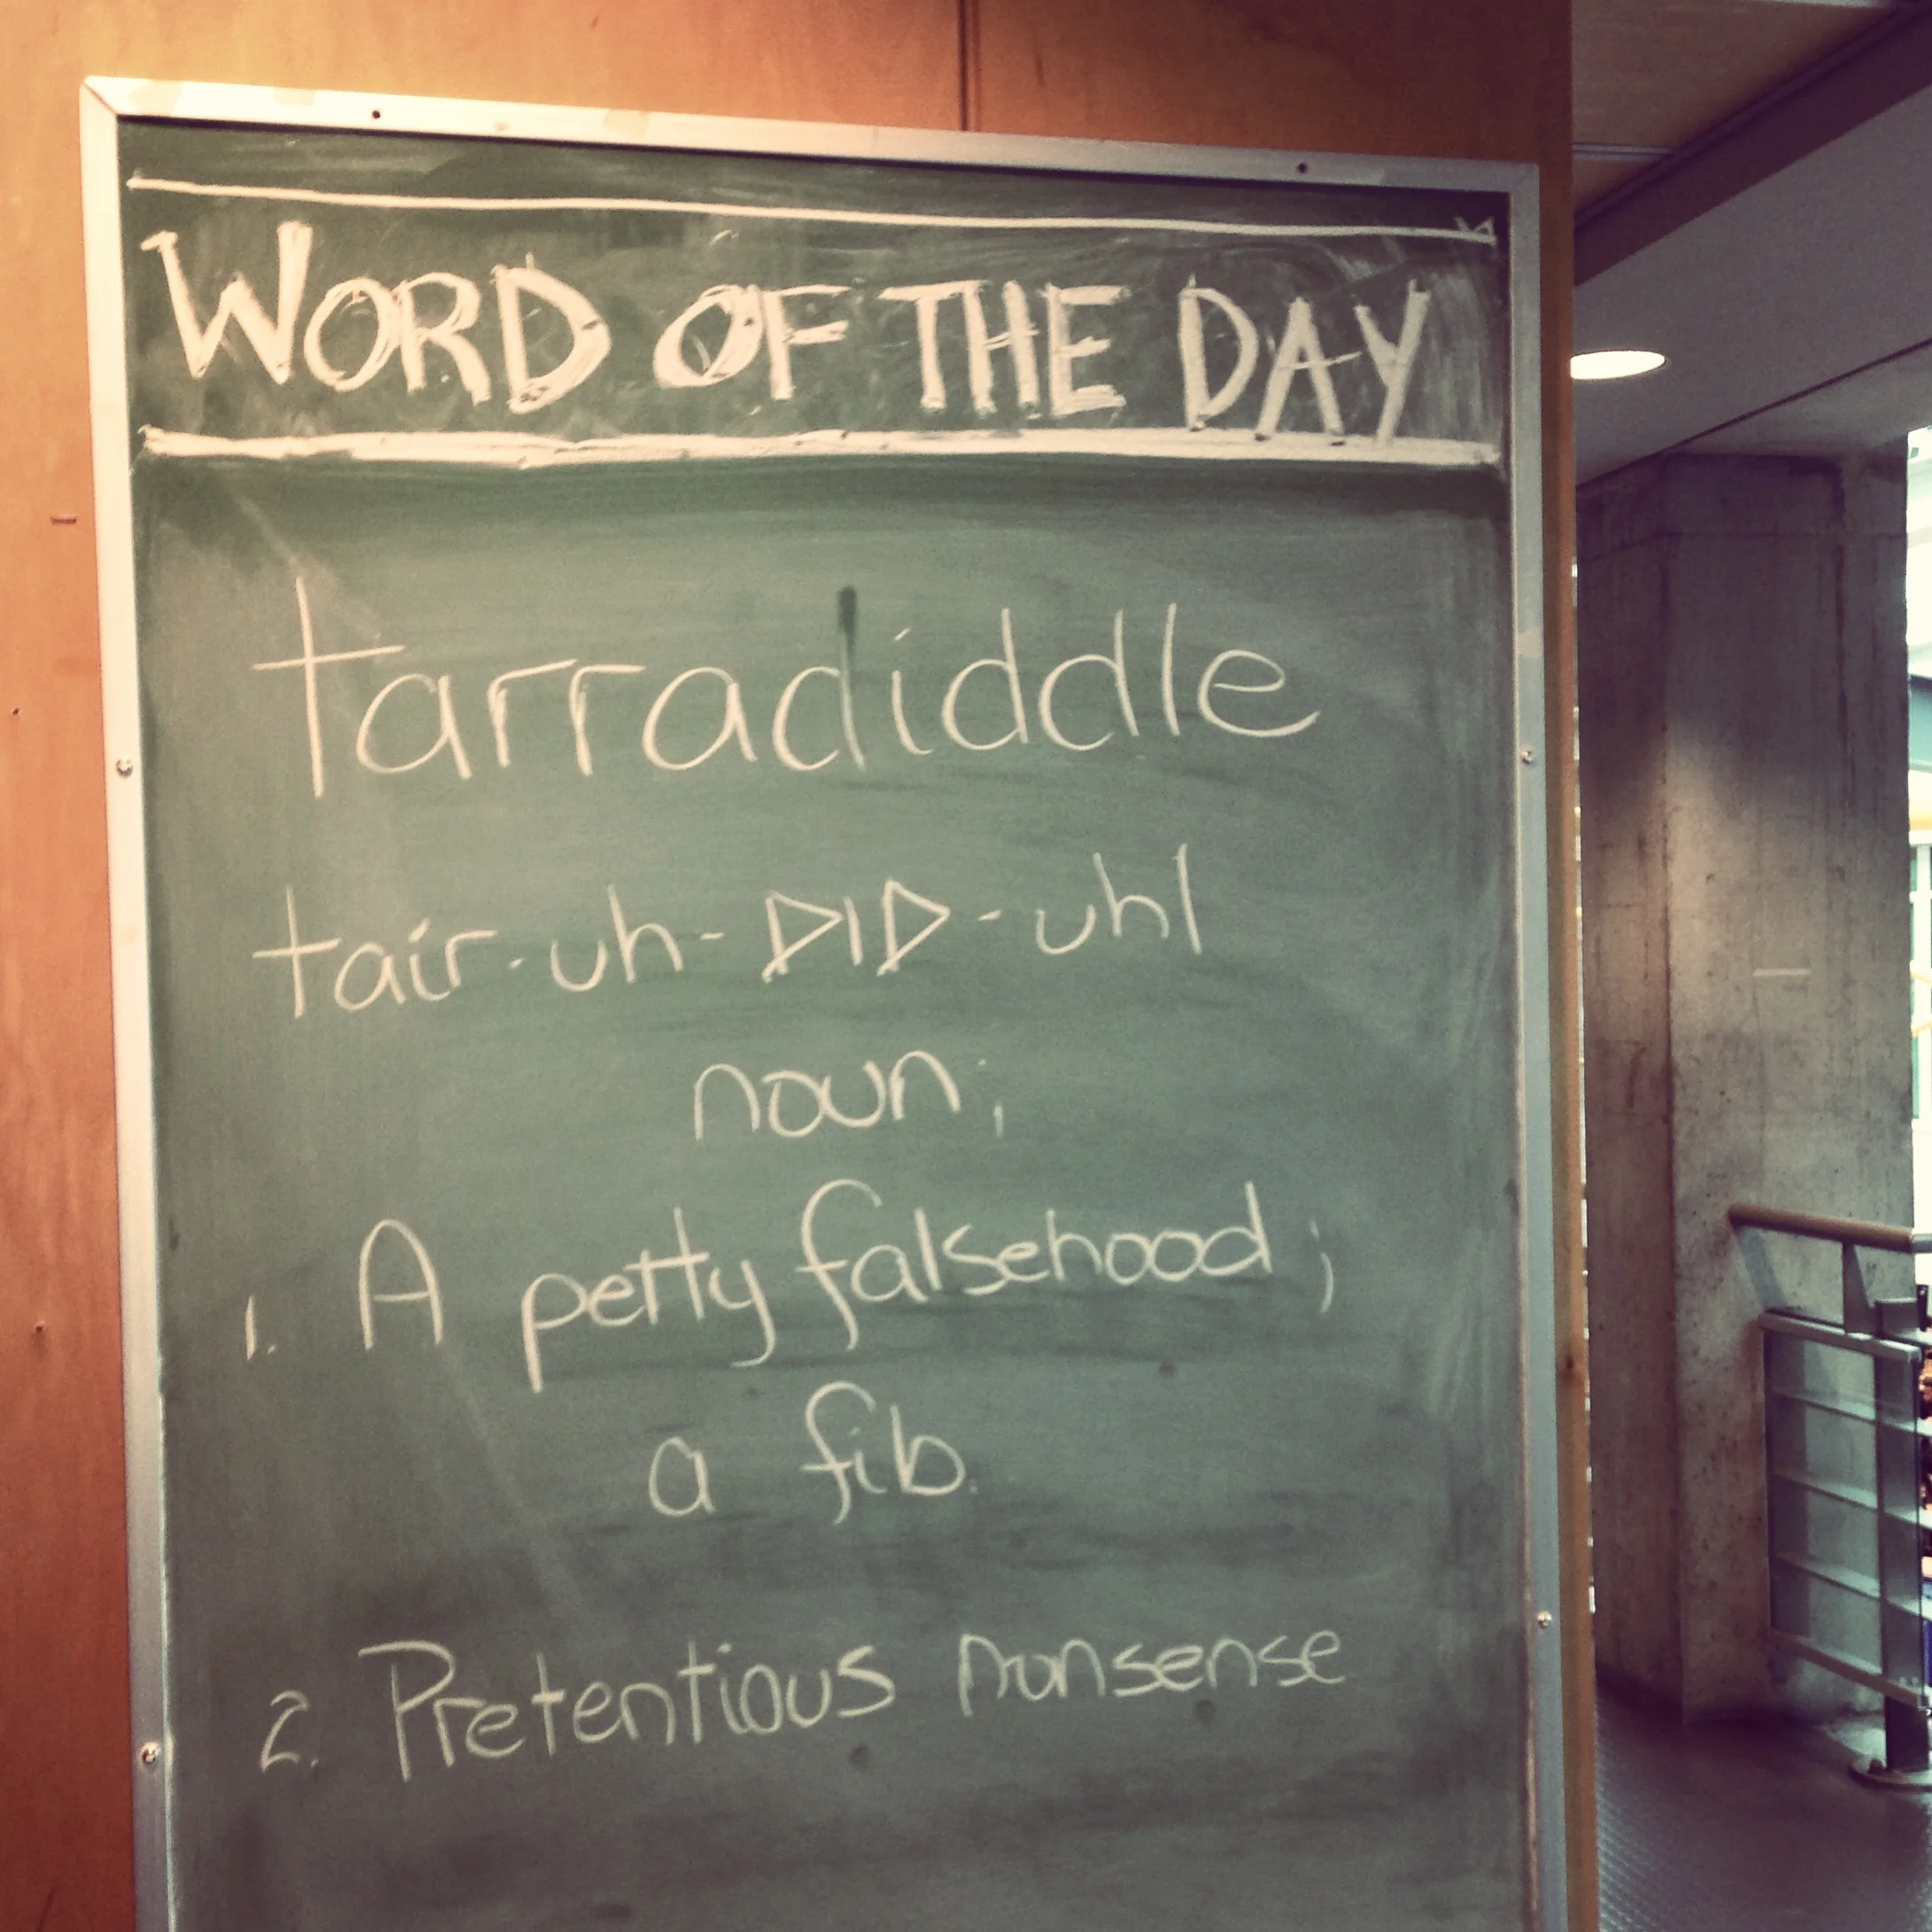 WORD OF THE DAY
tarradiddle
tair-uh-DID-uhl
noun;
1. A petty falsehood;
a fib.
2. Pretentious nonsense